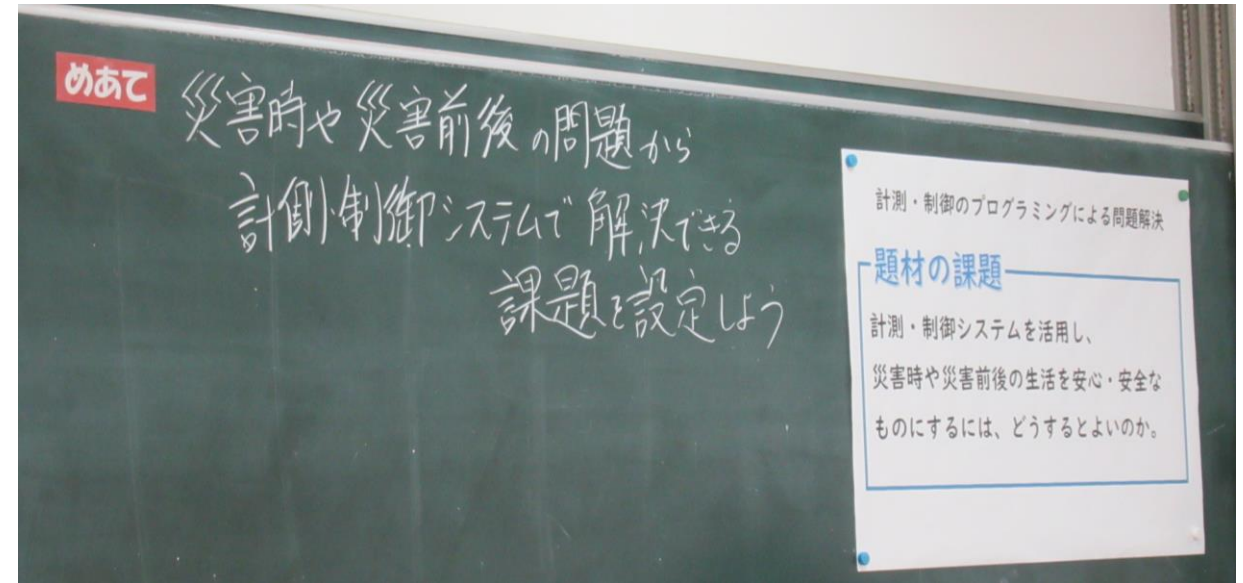 めあて
災害時や災害前後の問題から
計測・制御システムで解決できる
課題を設定しよう
計測・制御のプログラミングによる問題解決
題材の課題
計測・制御システムを活用し、
災害時や災害前後の生活を安心・安全な
ものにするには、どうするとよいのか。